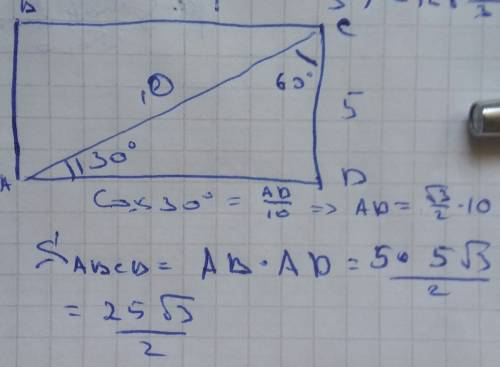 B
C
10
60°
5
30°
A
D
Cos 30° = AD/10 => AD = √3/2 · 10
S ABCD = AB · AD = 5 · 5√3/2
= 25√3/2